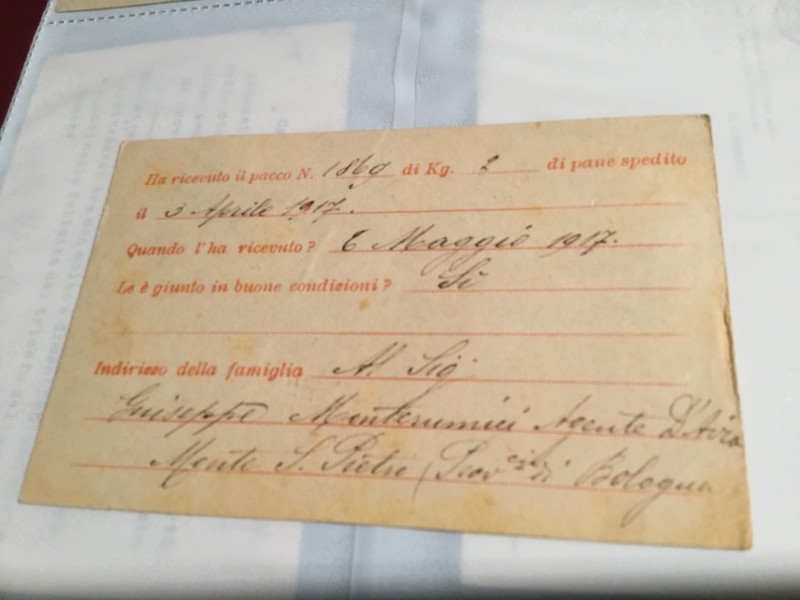 Ha ricevuto il pacco N. 1869 di Kg. 2 di pane spedito
il 3 Aprile 1917.
Quando l'ha ricevuto? 6 Maggio 1917.
Le è giunto in buone condizioni? Sì
Indirizzo della famiglia Al Sig
Giuseppe Monterumici Agente D'
Monte S. Pietro (Prov cia di Bologna